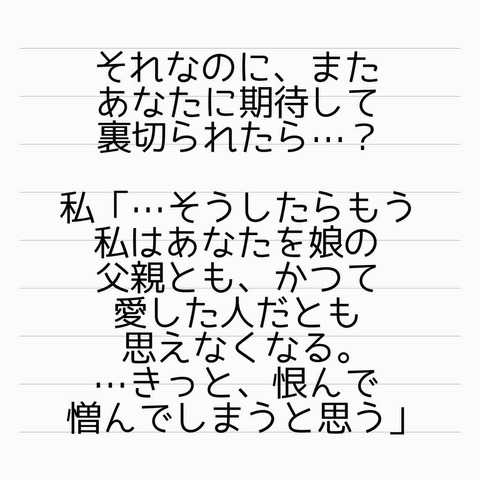 それなのに、また
あなたに期待して
裏切られたら…？
私「…そうしたらもう
私はあなたを娘の
父親とも、かつて
愛した人だとも
思えなくなる。
…きっと、恨んで
憎んでしまうと思う」